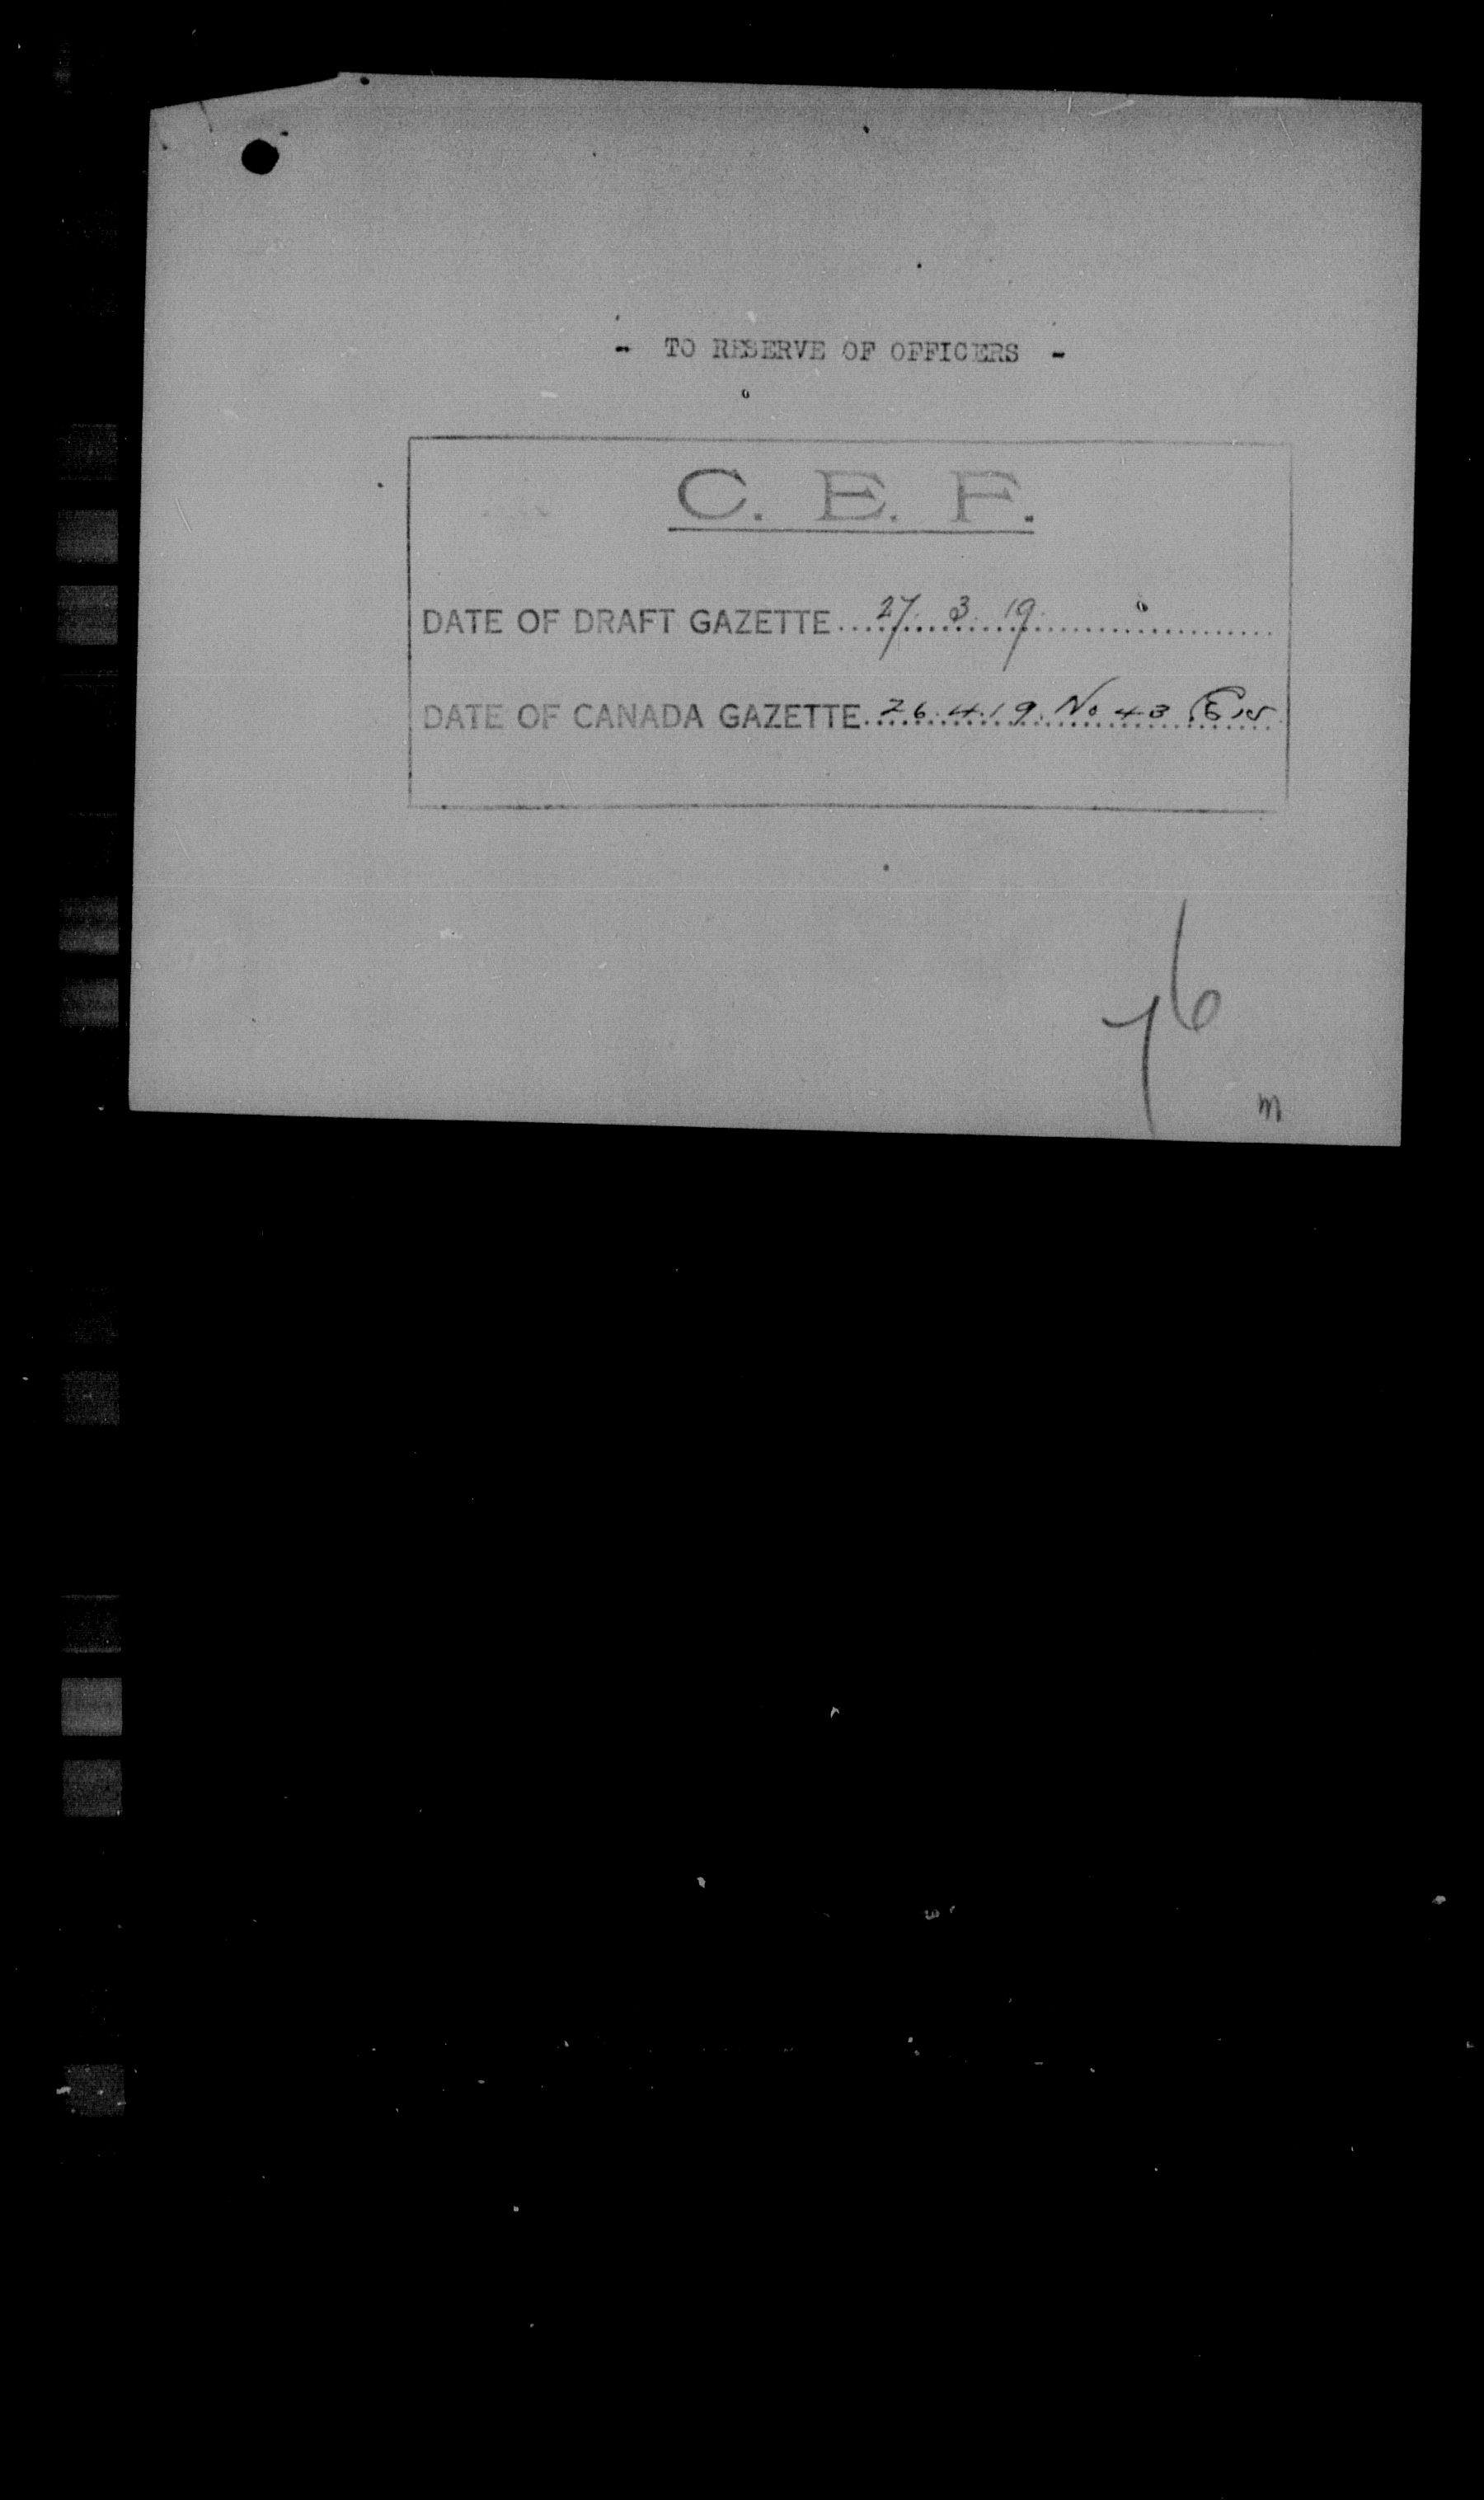 - TO RESERVE OF OFFICERS -
C. E. F.
DATE OF DRAFT GAZETTE....27.3.19.
DATE OF CANADA GAZETTE..26.4.19. No 43
76
m